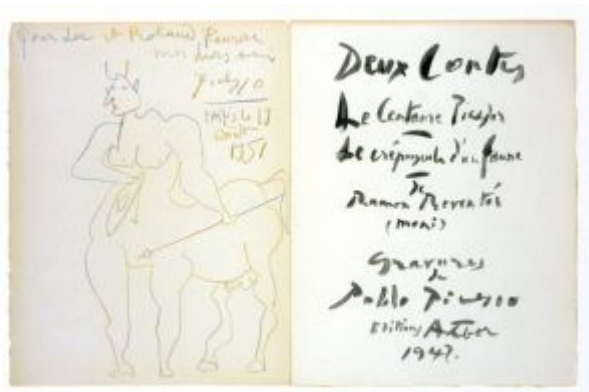 Pour Lee et Roland Penrose
mes chers amis
Picasso
Paris le 19
1951
Deux Contes
Le Centaure Picador
Le crépuscule d'un faune
de
Ramon Reventós
(moni)
Gravures
de
Pablo Picasso
Editions Albor
1947.